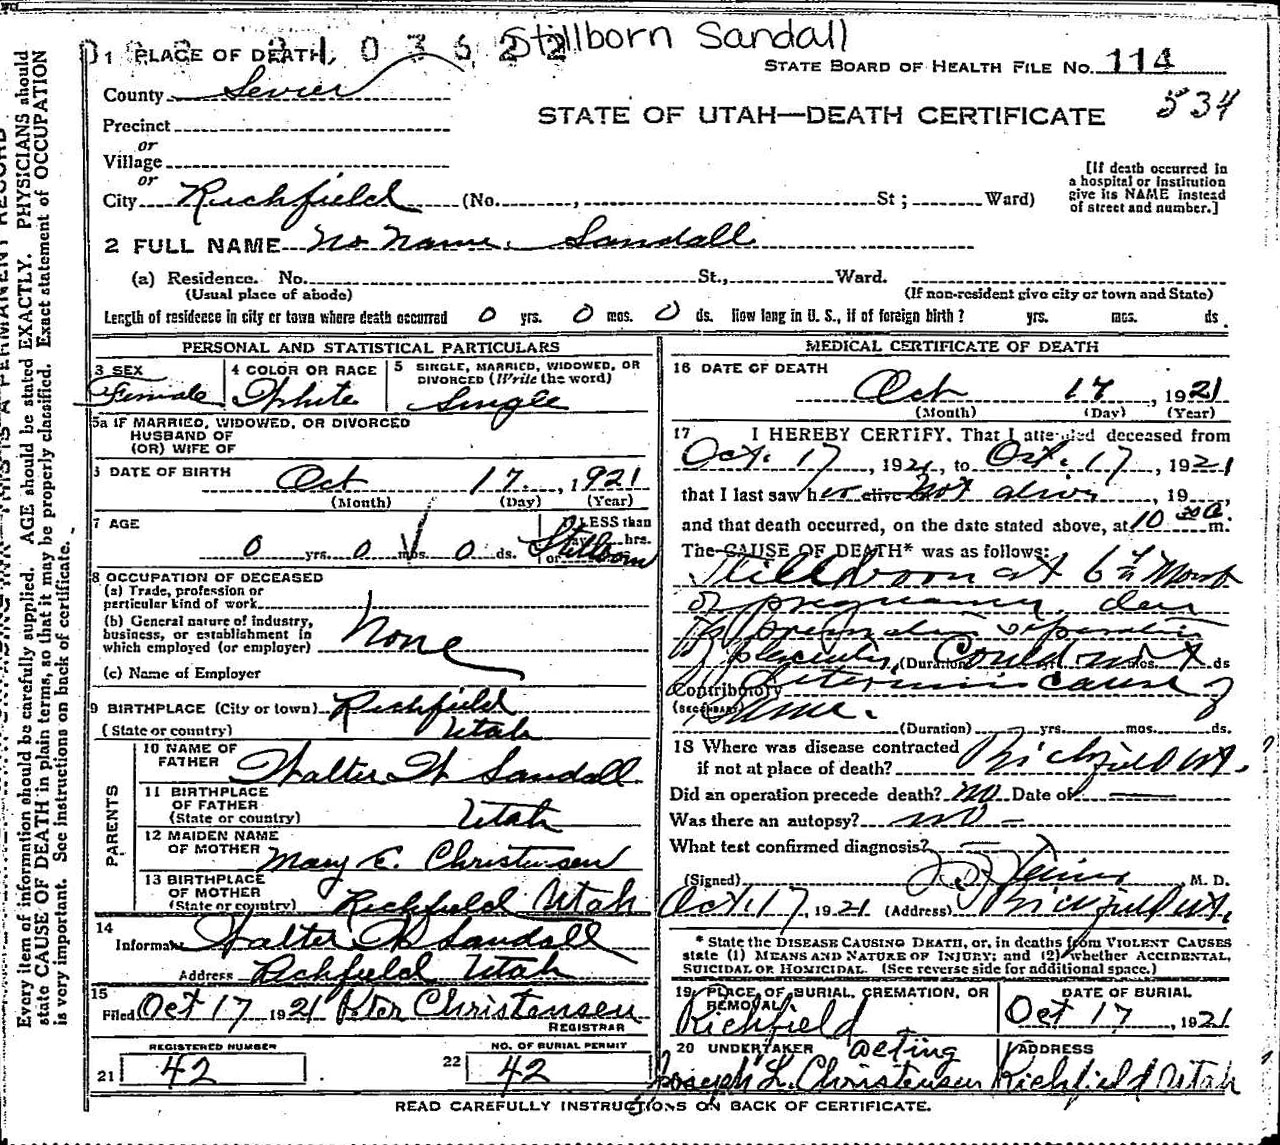 Stillborn Sandall
1 PLACE OF DEATH,
STATE BOARD OF HEALTH FILE NO. 114
County Sevier
534
STATE OF UTAH—DEATH CERTIFICATE
Precinct
or
Village
or
City Richfield (No. , St ; Ward)
[If death occurred in
a hospital or institution
give its NAME instead
of street and number.]
2 FULL NAME No Name. Sandall
(a) Residence. No. St., Ward.
(Usual place of abode) (If non-resident give city or town and State)
Length of residence in city or town where death occurred 0 yrs. 0 mos. 0 ds. How long in U. S., if of foreign birth ? yrs. mos. ds.
PERSONAL AND STATISTICAL PARTICULARS
3 SEX
Female
4 COLOR OR RACE
White
5 SINGLE, MARRIED, WIDOWED, OR
DIVORCED (Write the word)
Single
5a IF MARRIED, WIDOWED, OR DIVORCED
HUSBAND OF
(OR) WIFE OF
DATE OF BIRTH
Oct 17. , 1921
(Month) (Day) (Year)
7 AGE
LESS than
hrs.
0 yrs. 0 mos 0 ds. or Stillborn
8 OCCUPATION OF DECEASED
(a) Trade, profession or
particular kind of work
(b) General nature of industry,
business, or establishment in
which employed (or employer)
None
(c) Name of Employer
9 BIRTHPLACE (City or town) Richfield
(State or country) Utah
PARENTS
10 NAME OF
FATHER Walter W Sandall
11 BIRTHPLACE
OF FATHER
(State or country) Utah
12 MAIDEN NAME
OF MOTHER Mary E. Christensen
13 BIRTHPLACE
OF MOTHER
(State or country) Richfield Utah
14
Informant Walter W Sandall
Address Richfield Utah
15
Filed Oct 17 1921 Christensen
REGISTRAR
REGISTERED NUMBER
21 42
NO. OF BURIAL PERMIT
22 42
MEDICAL CERTIFICATE OF DEATH
16 DATE OF DEATH
Oct 17 , 1921
(Month) (Day) (Year)
17 I HEREBY CERTIFY, That I attended deceased from
Oct. 17 , 1921, to Oct. 17 , 1921
that I last saw her alive not alive , 19
and that death occurred, on the date stated above, at 10 m.
The CAUSE OF DEATH* was as follows:
Stillborn at 6th Month
of pregnancy, due
to premature separation
of placenta, (Duration) Could not mos. ds
Contributory determine cause of
(SECONDARY) Same.
(Duration) yrs. mos. ds.
18 Where was disease contracted
if not at place of death? Richfield Ut.
Did an operation precede death? no Date of
Was there an autopsy? no
What test confirmed diagnosis?
(Signed) M. D.
Oct. 17, 1921 (Address) Richfield Ut.
* State the DISEASE CAUSING DEATH, or, in deaths from VIOLENT CAUSES
state (1) MEANS AND NATURE OF INJURY; and (2) whether ACCIDENTAL,
SUICIDAL OR HOMICIDAL. (See reverse side for additional space.)
19 PLACE OF BURIAL, CREMATION, OR
REMOVAL
Richfield
DATE OF BURIAL
Oct 17 , 1921
20 UNDERTAKER acting
Joseph L. Christensen
ADDRESS
Richfield Utah
READ CAREFULLY INSTRUCTIONS ON BACK OF CERTIFICATE.
Every item of information should be carefully supplied. AGE should be stated EXACTLY. PHYSICIANS should
state CAUSE OF DEATH in plain terms, so that it may be properly classified. Exact statement of OCCUPATION
is very important. See instructions on back of certificate.